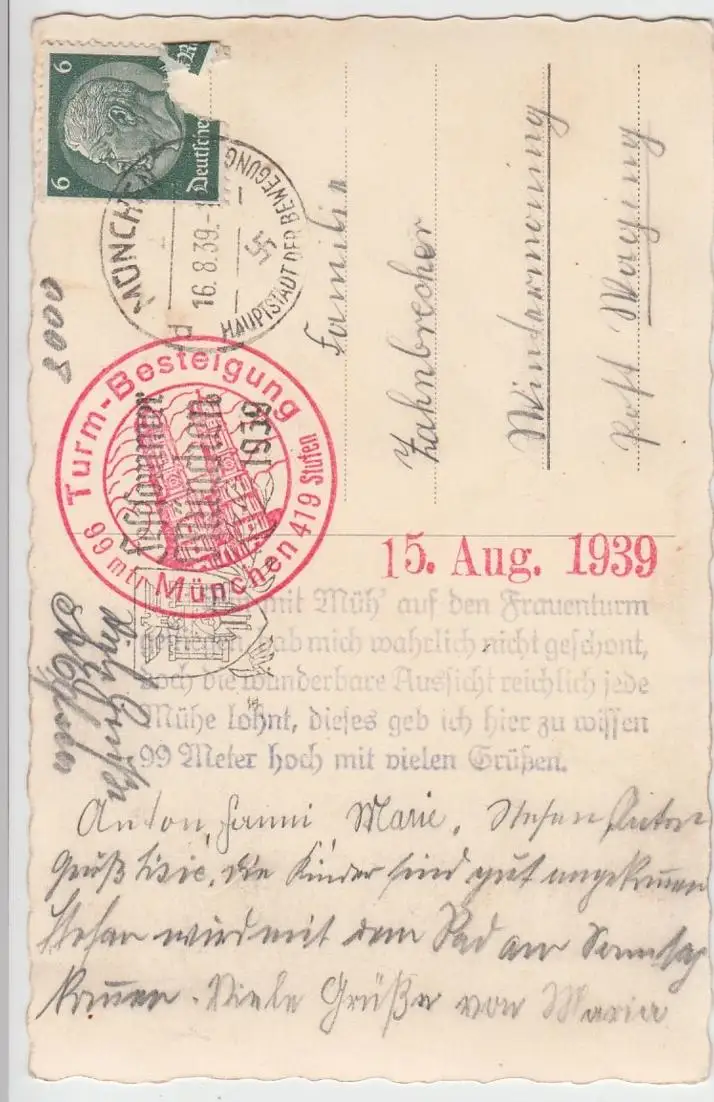 6
6
Deutsches
MÜNCHEN
16.8.39.-
HAUPTSTADT DER BEWEGUNG
Festsommer
München
1939
Turm-Besteigung
99 mtr. München 419 Stufen
8000
Familie
Zahnbrecher
Windermoning
Post Waging
15. Aug. 1939
mit Müh' auf den Frauenturm
hab mich wahrlich nicht geschont,
doch die wunderbare Aussicht reichlich jede
Mühe lohnt, dieses geb ich hier zu wissen
99 Meter hoch mit vielen Grüßen.
Viele Grüße
Anton, Fanni Marie, Stefan, Anton
Grüß, die Kinder sind gut angekommen
Stefan wird mit dem Rad am Sonntag
kommen. Viele Grüße von Maria